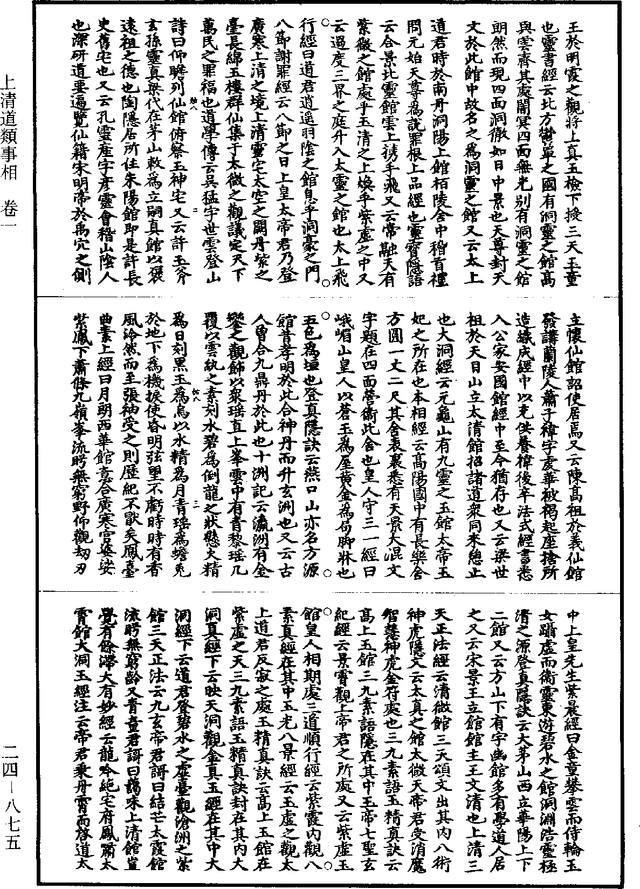 上清道類事相　卷一
二四—八七五
王於明霞之觀將上真五檢下授三天玉童
也靈書經云北方欝單之國有洞靈之館高
與雲齊其處闇冥四面無光別有洞靈之館
朗然而現四面洞徹如日中景也天尊封天
文於此館中故名之為洞靈之館又云太上
道君時於南丹洞陽上館栢陵舍中稽首禮
問元始天尊為說罪根上品經也靈寶隱語
云合景比靈館雲上携手飛又云常融天有
紫微之館處乎玉清之上煥乎紫虛之中又
云過度三界之庭升入太靈之館也太上飛
行經曰道君逍遥羽陰之館息乎洞臺之門
八節謝罪經云八節之日上皇太帝君乃登
廣寒上清之境上清靈宅太空之闕丹紫之
臺長綿五樓群仙集于太微之觀議定天下
萬民之罪福也道學傳云吳猛字世雲登山
詩曰仰𥈞列仙館俯察王神宅又云許玉斧
玄孫靈真梁代在茅山敕為立嗣真館以褒
遠祖之德也陶隱居所住朱陽館即是許長
史舊宅也又云孔靈産字彦靈會稽山陰人
也深研道要遍覽仙籍宋明帝於禹穴之側
立懷仙館詔使居焉又云陳高祖於義仙館
發講蘭陵人蕭子䘙字䖍華被褐起座捨所
造繕成經中以充供養䘙後卒法式經書悉
入公家安國館經中至今猶存也又云梁世
祖於天目山立太清館招諸道衆同來憩止
也大洞經云元龜山有九靈之玉館太帝玉
妃之所在也本相經云高陽國中有長樂舍
方圓一丈二尺其舍表裏悉有天景大混文
字題在四面營衛此舍也皇人守三一經曰
峨嵋山皇人以蒼玉為屋黄金為局脚牀也
五色為壇也登真隱訣云燕口山亦名方源
館昔孝明於此合神丹而升玄洲也又云古
人曾合九鼎丹於此也十洲記云瀛洲有金
鑾之觀飾以衆瑶直上峯雲中有青黎瑶几
覆以雲紈之素刻水碧為倒龍之狀懸火精
為日刻黒玉為烏以水精為月青瑶為蟾兎
於地下為機捩使昏明弦望不虧時時有香
風泠然而至張袖受之則歷紀不歇矣鳳臺
曲素上經曰月朔西華館竟合廣寒宫婆娑
紫鳳下蕭條九嶺峯流眄無窮野仰觀刼刃
中上皇先生紫晨經曰金童攀雲而侍輪玉
女躡虛而衛靈東遊碧水之館洞淵浩靈極
清之源登真隱訣云大茅山西立華陽上下
二館又云方山下有宇幽館多有學道人居
之又云宋景王立館館主王文清也上清三
天正法經云清微館三天頌文出其内八術
神虎隱文云太真之館太微天帝君受消魔
智慧神虎金符處也三九素語玉精真訣云
高上玉館三九素語隱在其中玉帝七聖玄
紀經云景霄觀上帝君之所處又云紫虛玉
館皇人相期處三道順行經云紫霞内觀八
素真經在其中玉光八景經云玉虛之觀太
上道君反寂之處玉精真訣云高上玉館在
紫虛之天三九素語玉精真訣封在其内大
洞真經下云映天洞觀金真玉經在其中大
洞經下云道君登碧水之虛臺觀滄洲之紫
館三天正法云九玄帝君歌曰結芒太霞館
流眄無窮齡又青童君謌曰藹咏上清館豈
覺有餘滯大有妙經云龍吟絶宅府鳳嘯太
霄館大洞玉經注云帝君乘丹霄而啓道太